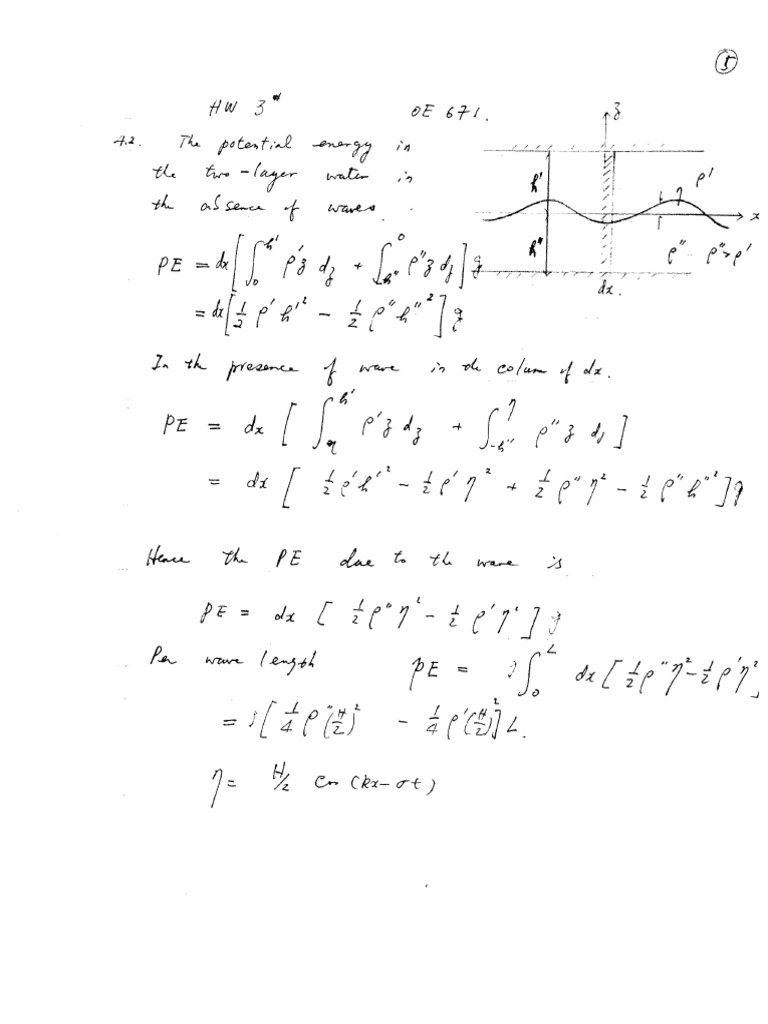 ⑤
HW 3rd OE 671.
4.2. The potential energy in
the two-layer water in
the absence of waves
z
h'
ρ'
η
x
h"
ρ" ρ">ρ'
dx.
PE = dx[∫₀^h' ρ'z dz + ∫₋h"^0 ρ"z dz] g
= dx[1/2 ρ' h'² - 1/2 ρ" h"²] g
In the presence of wave in the colum of dx.
PE = dx [ ∫_η^h' ρ'z dz + ∫_-h"^η ρ" z dz ]
= dx [ 1/2 ρ'h'² - 1/2 ρ' η² + 1/2 ρ" η² - 1/2 ρ" h"² ] g
Hence the PE due to the wave is
PE = dx [ 1/2 ρ" η² - 1/2 ρ' η² ] g
Per wave length PE = g ∫₀^L dx [ 1/2 ρ"η² - 1/2 ρ'η²
= g [ 1/4 ρ" (H/2)² - 1/4 ρ' (H/2)² ] L.
η = H/2 cos (kx - σt)